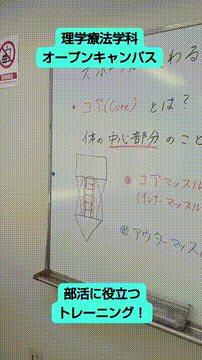 理学療法学科
オープンキャンパス
わる
・コア(Core)とは?
体の中心部分のこと
コアマッスル
(インナーマッスル
アウターマッスル
部活に役立つ
トレーニング!